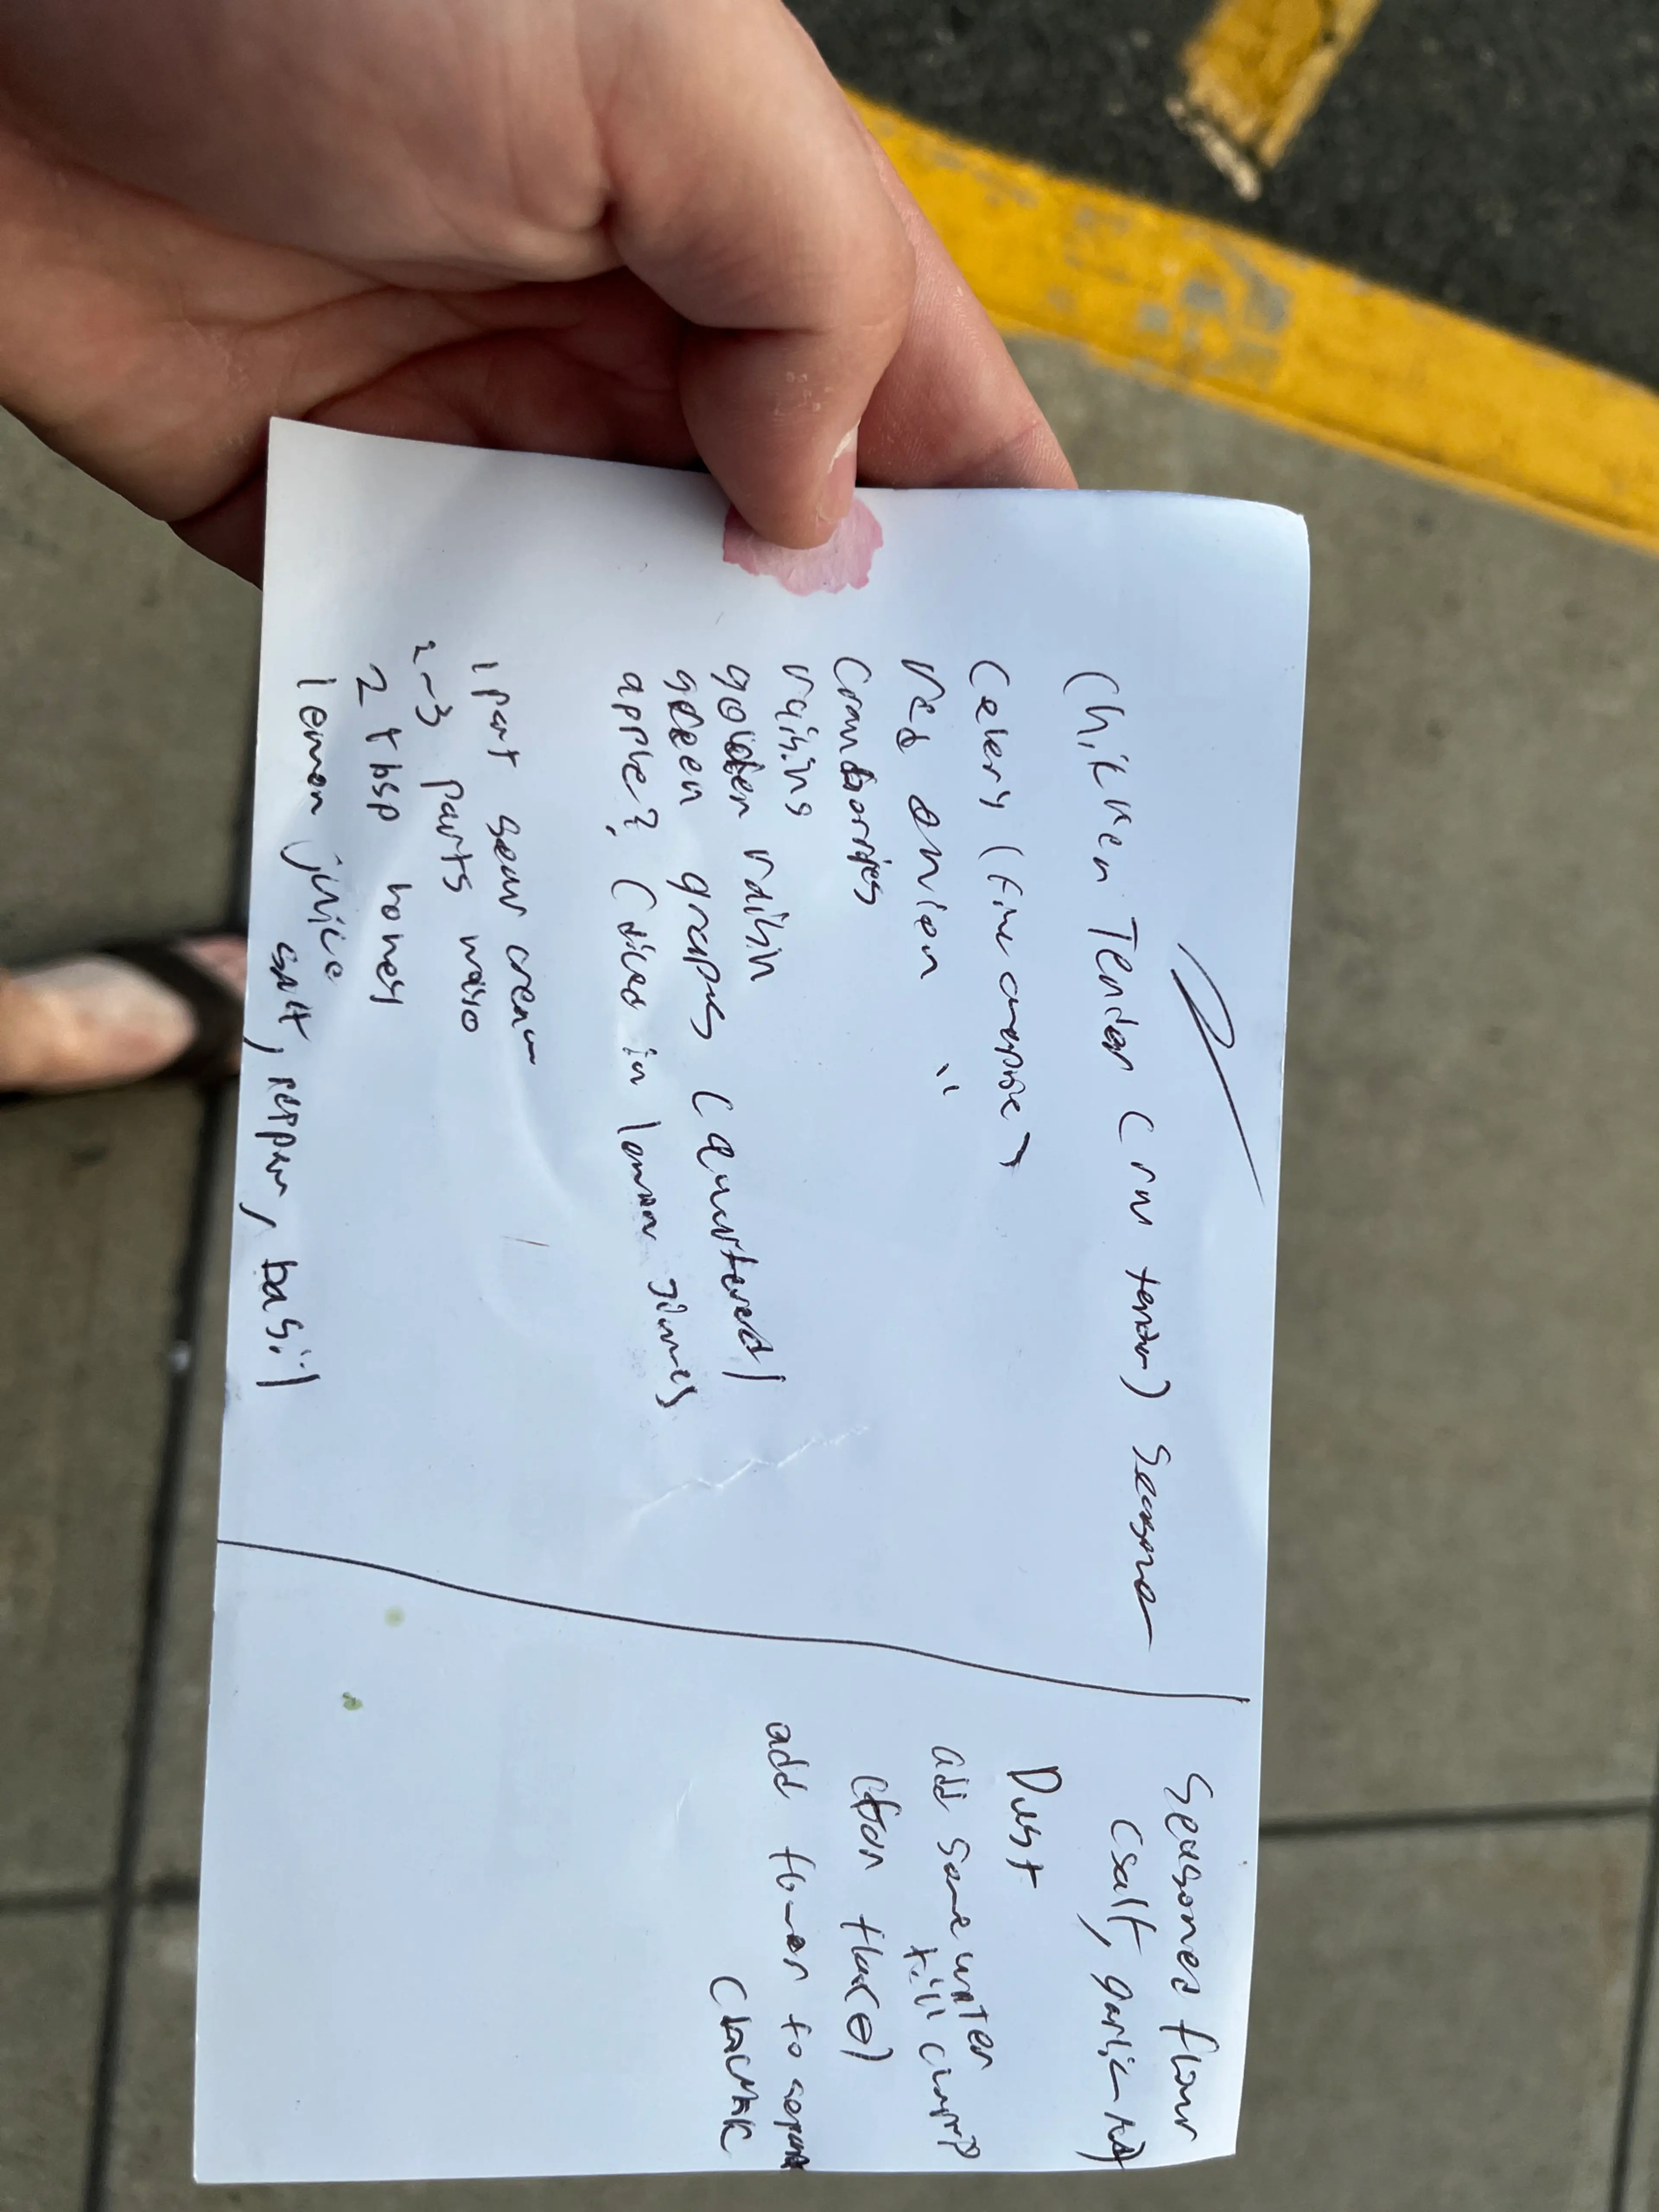 Chicken Tender (raw tender) season
Celery (fine chop)
red onion "
Cranberries
raisins
golden raisin
green grapes (quartered)
apple? (diced in lemon
1 part sour cream
2-3 parts mayo
2 tbsp honey
lemon juice
salt, pepper, basil
Seasoned flour
(salt, garlic
Dust
add some water
till clump
(for flake)
add flour to separate
chunk